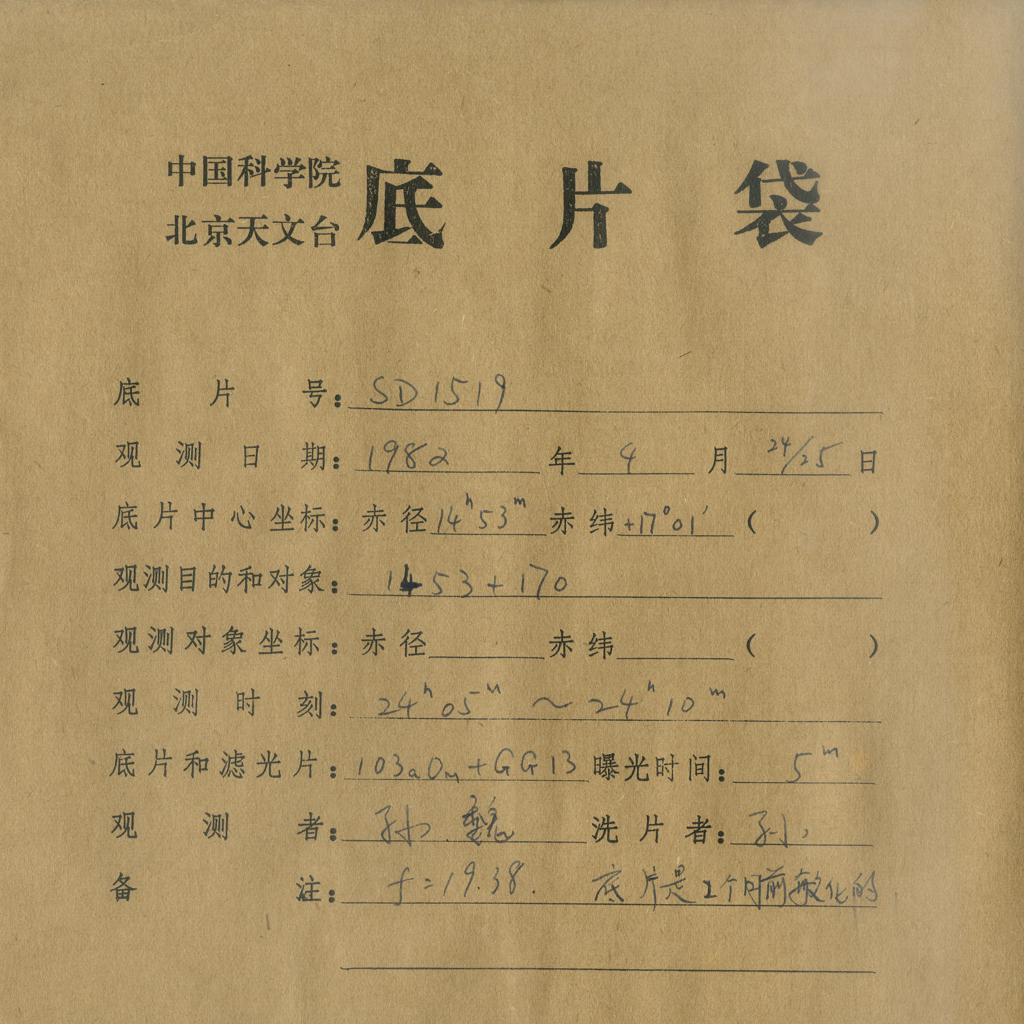 中国科学院
北京天文台
底片袋
底片号：SD1519
观测日期：1982年4月24/25日
底片中心坐标：赤径14ʰ53ᵐ赤纬+17°01′（ ）
观测目的和对象：1453+170
观测对象坐标：赤径 赤纬 （ ）
观测时刻：24ʰ05ᵐ～24ʰ10ᵐ
底片和滤光片：103aOm+GG13曝光时间：5ᵐ
观测者：孙 魏 洗片者：孙
备注：f=19.38. 底片是1个月前敏化的